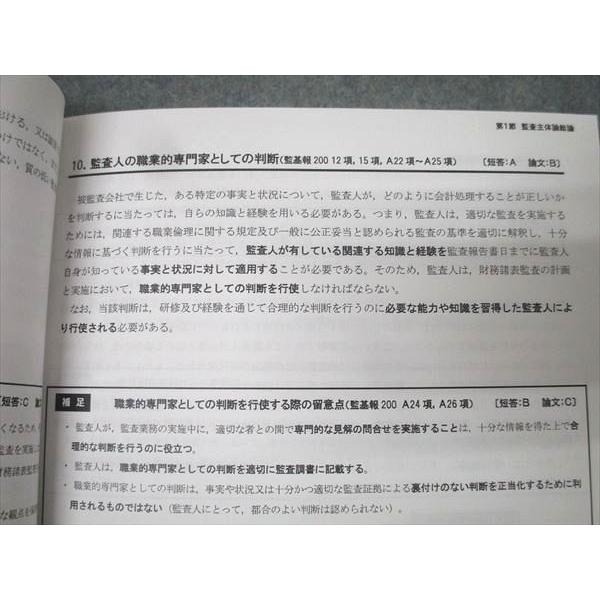 ける,又は顧
けではなく,ま
ない,質の高い
第1節 監査主体論総論
10.監査人の職業的専門家としての判断(監基報200 12項,15項,A22項~A25項) [短答:A 論文:B]
被監査会社で生じた,ある特定の事実と状況について,監査人が,どのように会計処理することが正しいか
を判断するに当たっては,自らの知識と経験を用いる必要がある。つまり,監査人は,適切な監査を実施する
ためには,関連する職業倫理に関する規定及び一般に公正妥当と認められる監査の基準を適切に解釈し,十分
な情報に基づく判断を行うに当たって,監査人が有している関連する知識と経験を監査報告書日までに監査人
自身が知っている事実と状況に対して適用することが必要である。そのため,監査人は,財務諸表監査の計画
と実施において,職業的専門家としての判断を行使しなければならない。
なお,当該判断は,研修及び経験を通じて合理的な判断を行うのに必要な能力や知識を習得した監査人によ
り行使される必要がある。
[短答:C 論文
くなるため,
監査を実施
財務諸表監
な観点を
補足 職業的専門家としての判断を行使する際の留意点(監基報200 A24項,A26項) [短答:B 論文:C]
・ 監査人が,監査業務の実施中に,適切な者との間で専門的な見解の問合せを実施することは,十分な情報を得た上で合
理的な判断を行うのに役立つ。
・ 監査人は,職業的専門家としての判断を適切に監査調書に記載する。
・ 職業的専門家としての判断は,事実や状況又は十分かつ適切な監査証拠による裏付けのない判断を正当化するために利
用されるものではない(監査人にとって,都合のよい判断は認められない)。